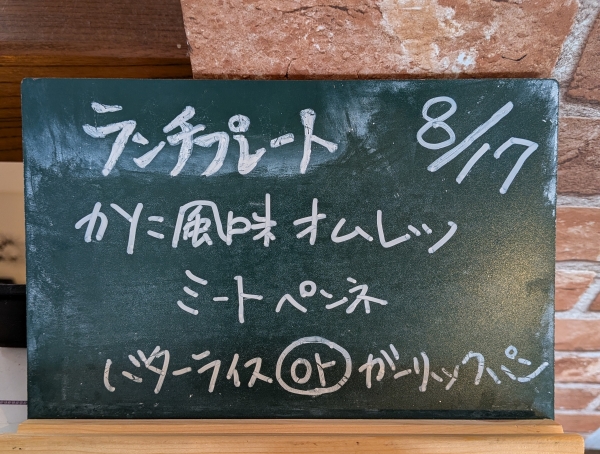 ランチプレート 8/17
かに風味 オムレツ
ミートペンネ
バターライス or ガーリックパン